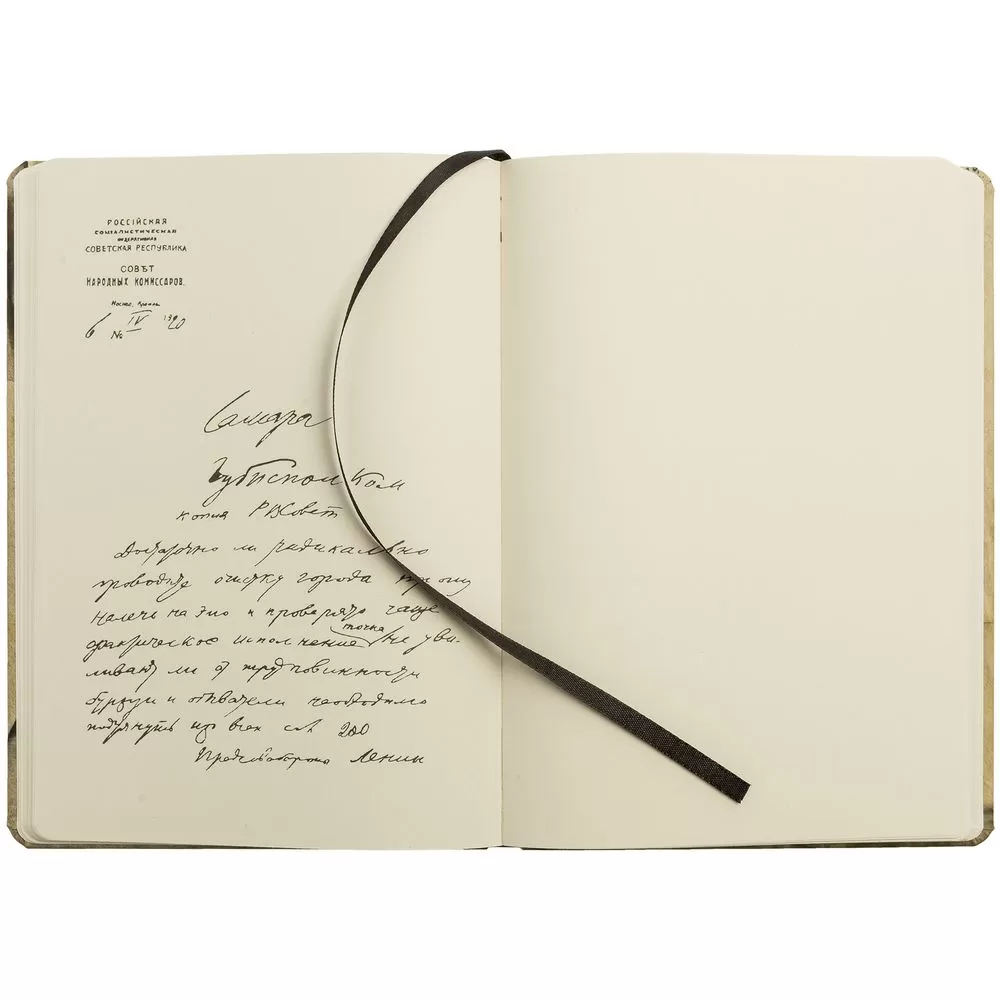 РОССІЙСКАЯ
СОЦІАЛИСТИЧЕСКАЯ
ФЕДЕРАТИВНАЯ
СОВЕТСКАЯ РЕСПУБЛИКА
СОВѢТ
НАРОДНЫХ КОМИССАРОВ.
Москва, Кремль
6 IV 1920
№
Самара
Губиспол Ком
копия РКСовет
Достаточно ли радикально
проводите очистку города
налечь на это и проверять чаще
фактическое исполнение точка не уви-
ливают ли от трудповинности
буржуи и необходимо
подтянуть изо всех сил 200
Предсовобороны Ленин